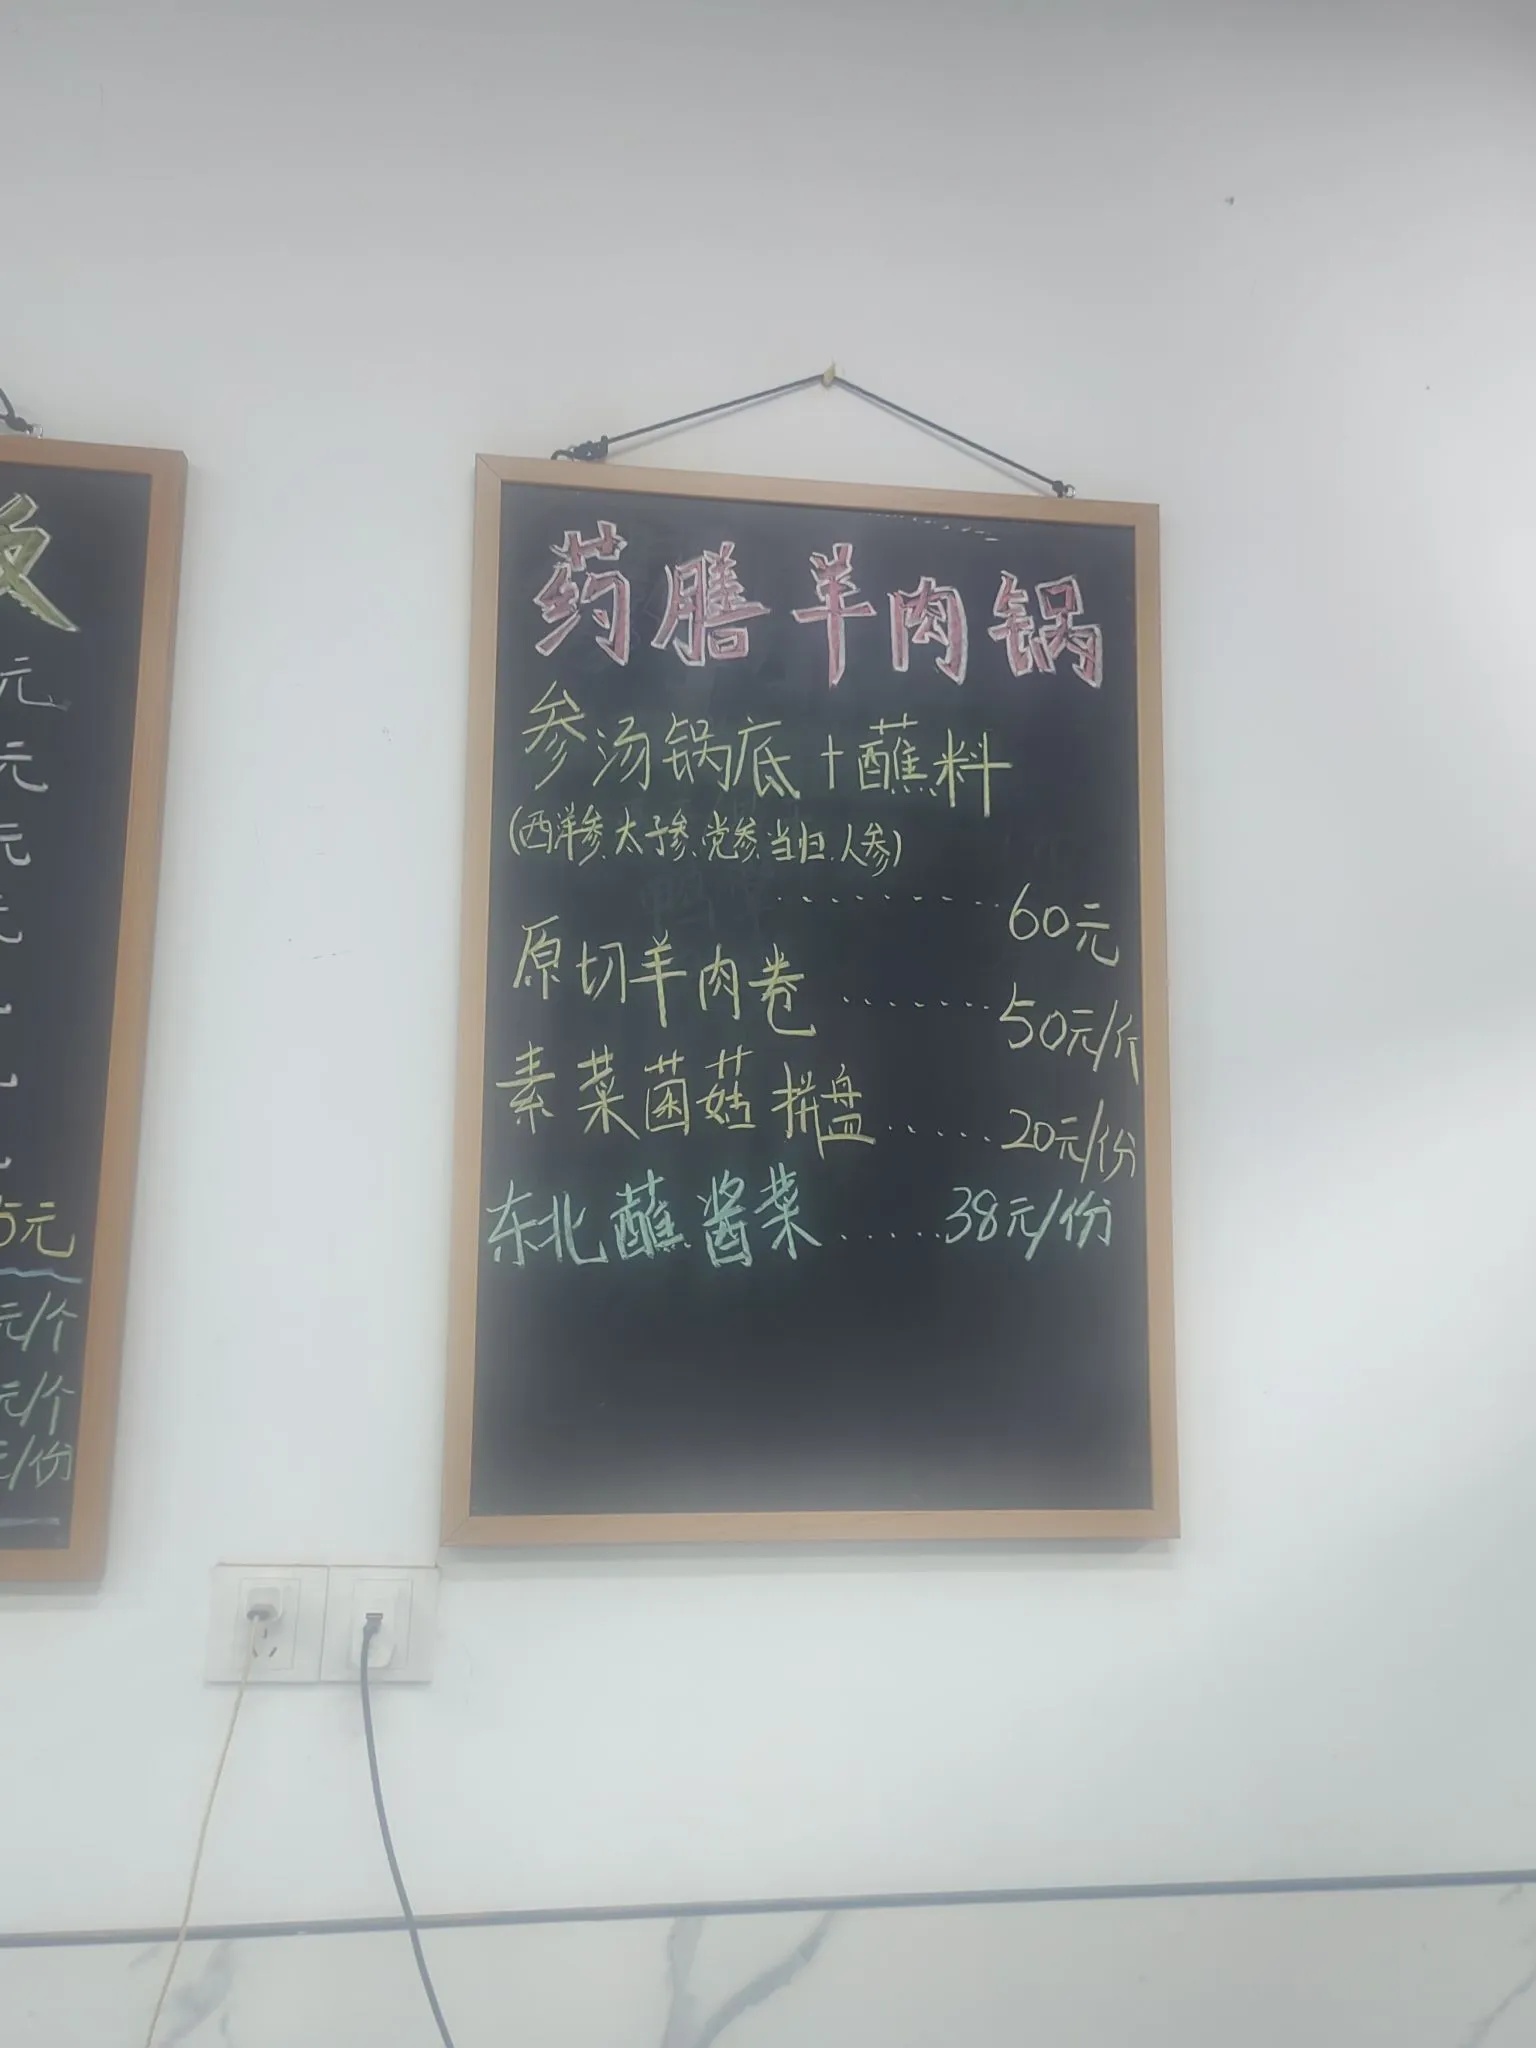 药膳羊肉锅
参汤锅底+蘸料
(西洋参、太子参、党参、当归、人参)
………60元
原切羊肉卷………50元/斤
素菜菌菇拼盘……20元/份
东北蘸酱菜……38元/份
元
元
元
元
5元
元/个
元/个
元/份